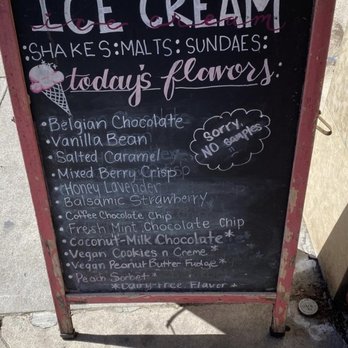 ICE CREAM
:SHAKES:MALTS:SUNDAES:
today's flavors.
• Belgian Chocolate
• Vanilla Bean
• Salted Caramel
• Mixed Berry Crisp
• Honey Lavender
• Balsamic Strawberry
• Coffee Chocolate Chip
• Fresh Mint Chocolate Chip
• Coconut-Milk Chocolate*
• Vegan Cookies n Creme*
• Vegan Peanut Butter Fudge*
• Peach Sorbet*
*Dairy-free Flavor*
Sorry,
NO samples